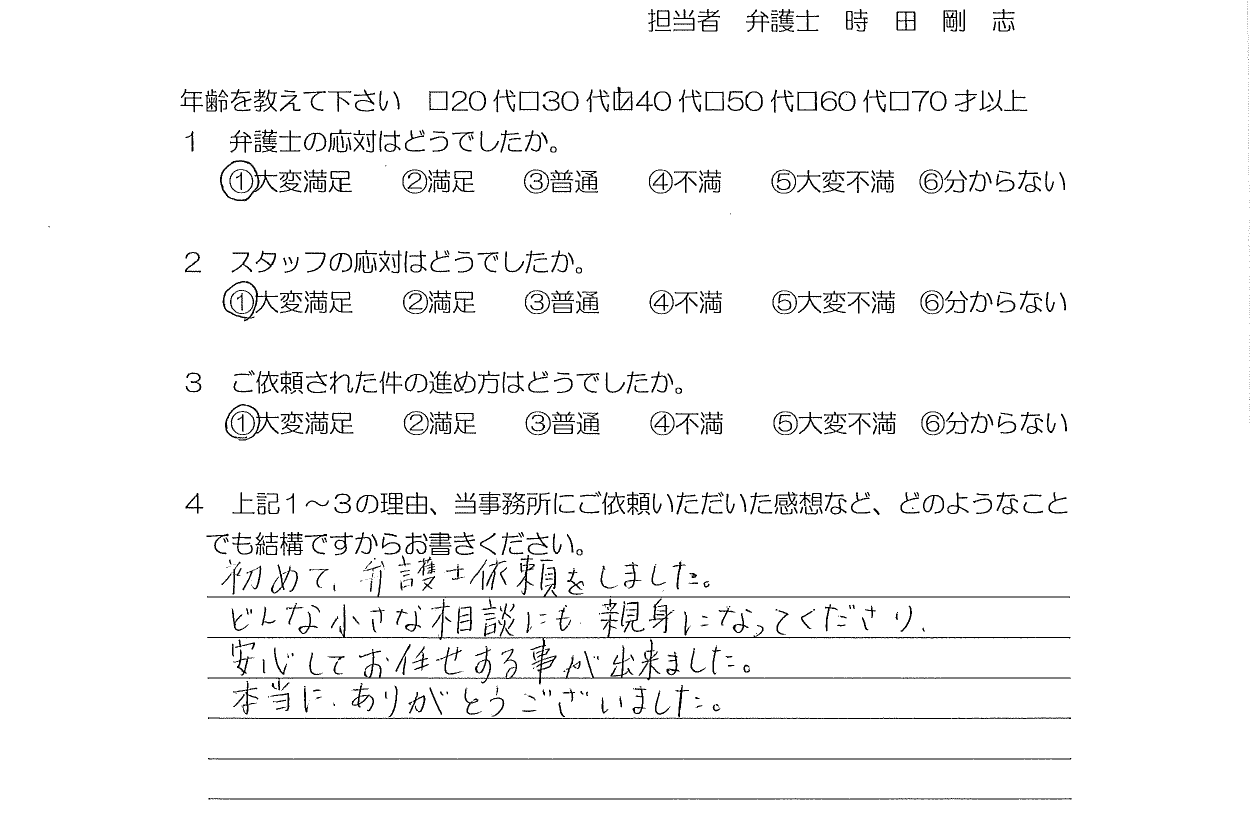 担当者　弁護士　時　田　剛　志
年齢を教えて下さい　□20代□30代☑40代□50代□60代□70才以上
１　弁護士の応対はどうでしたか。
①大変満足　②満足　③普通　④不満　⑤大変不満　⑥分からない
２　スタッフの応対はどうでしたか。
①大変満足　②満足　③普通　④不満　⑤大変不満　⑥分からない
３　ご依頼された件の進め方はどうでしたか。
①大変満足　②満足　③普通　④不満　⑤大変不満　⑥分からない
４　上記１～３の理由、当事務所にご依頼いただいた感想など、どのようなこと
でも結構ですからお書きください。
初めて、弁護士依頼をしました。
どんな小さな相談にも、親身になってくださり、
安心してお任せする事が出来ました。
本当に、ありがとうございました。